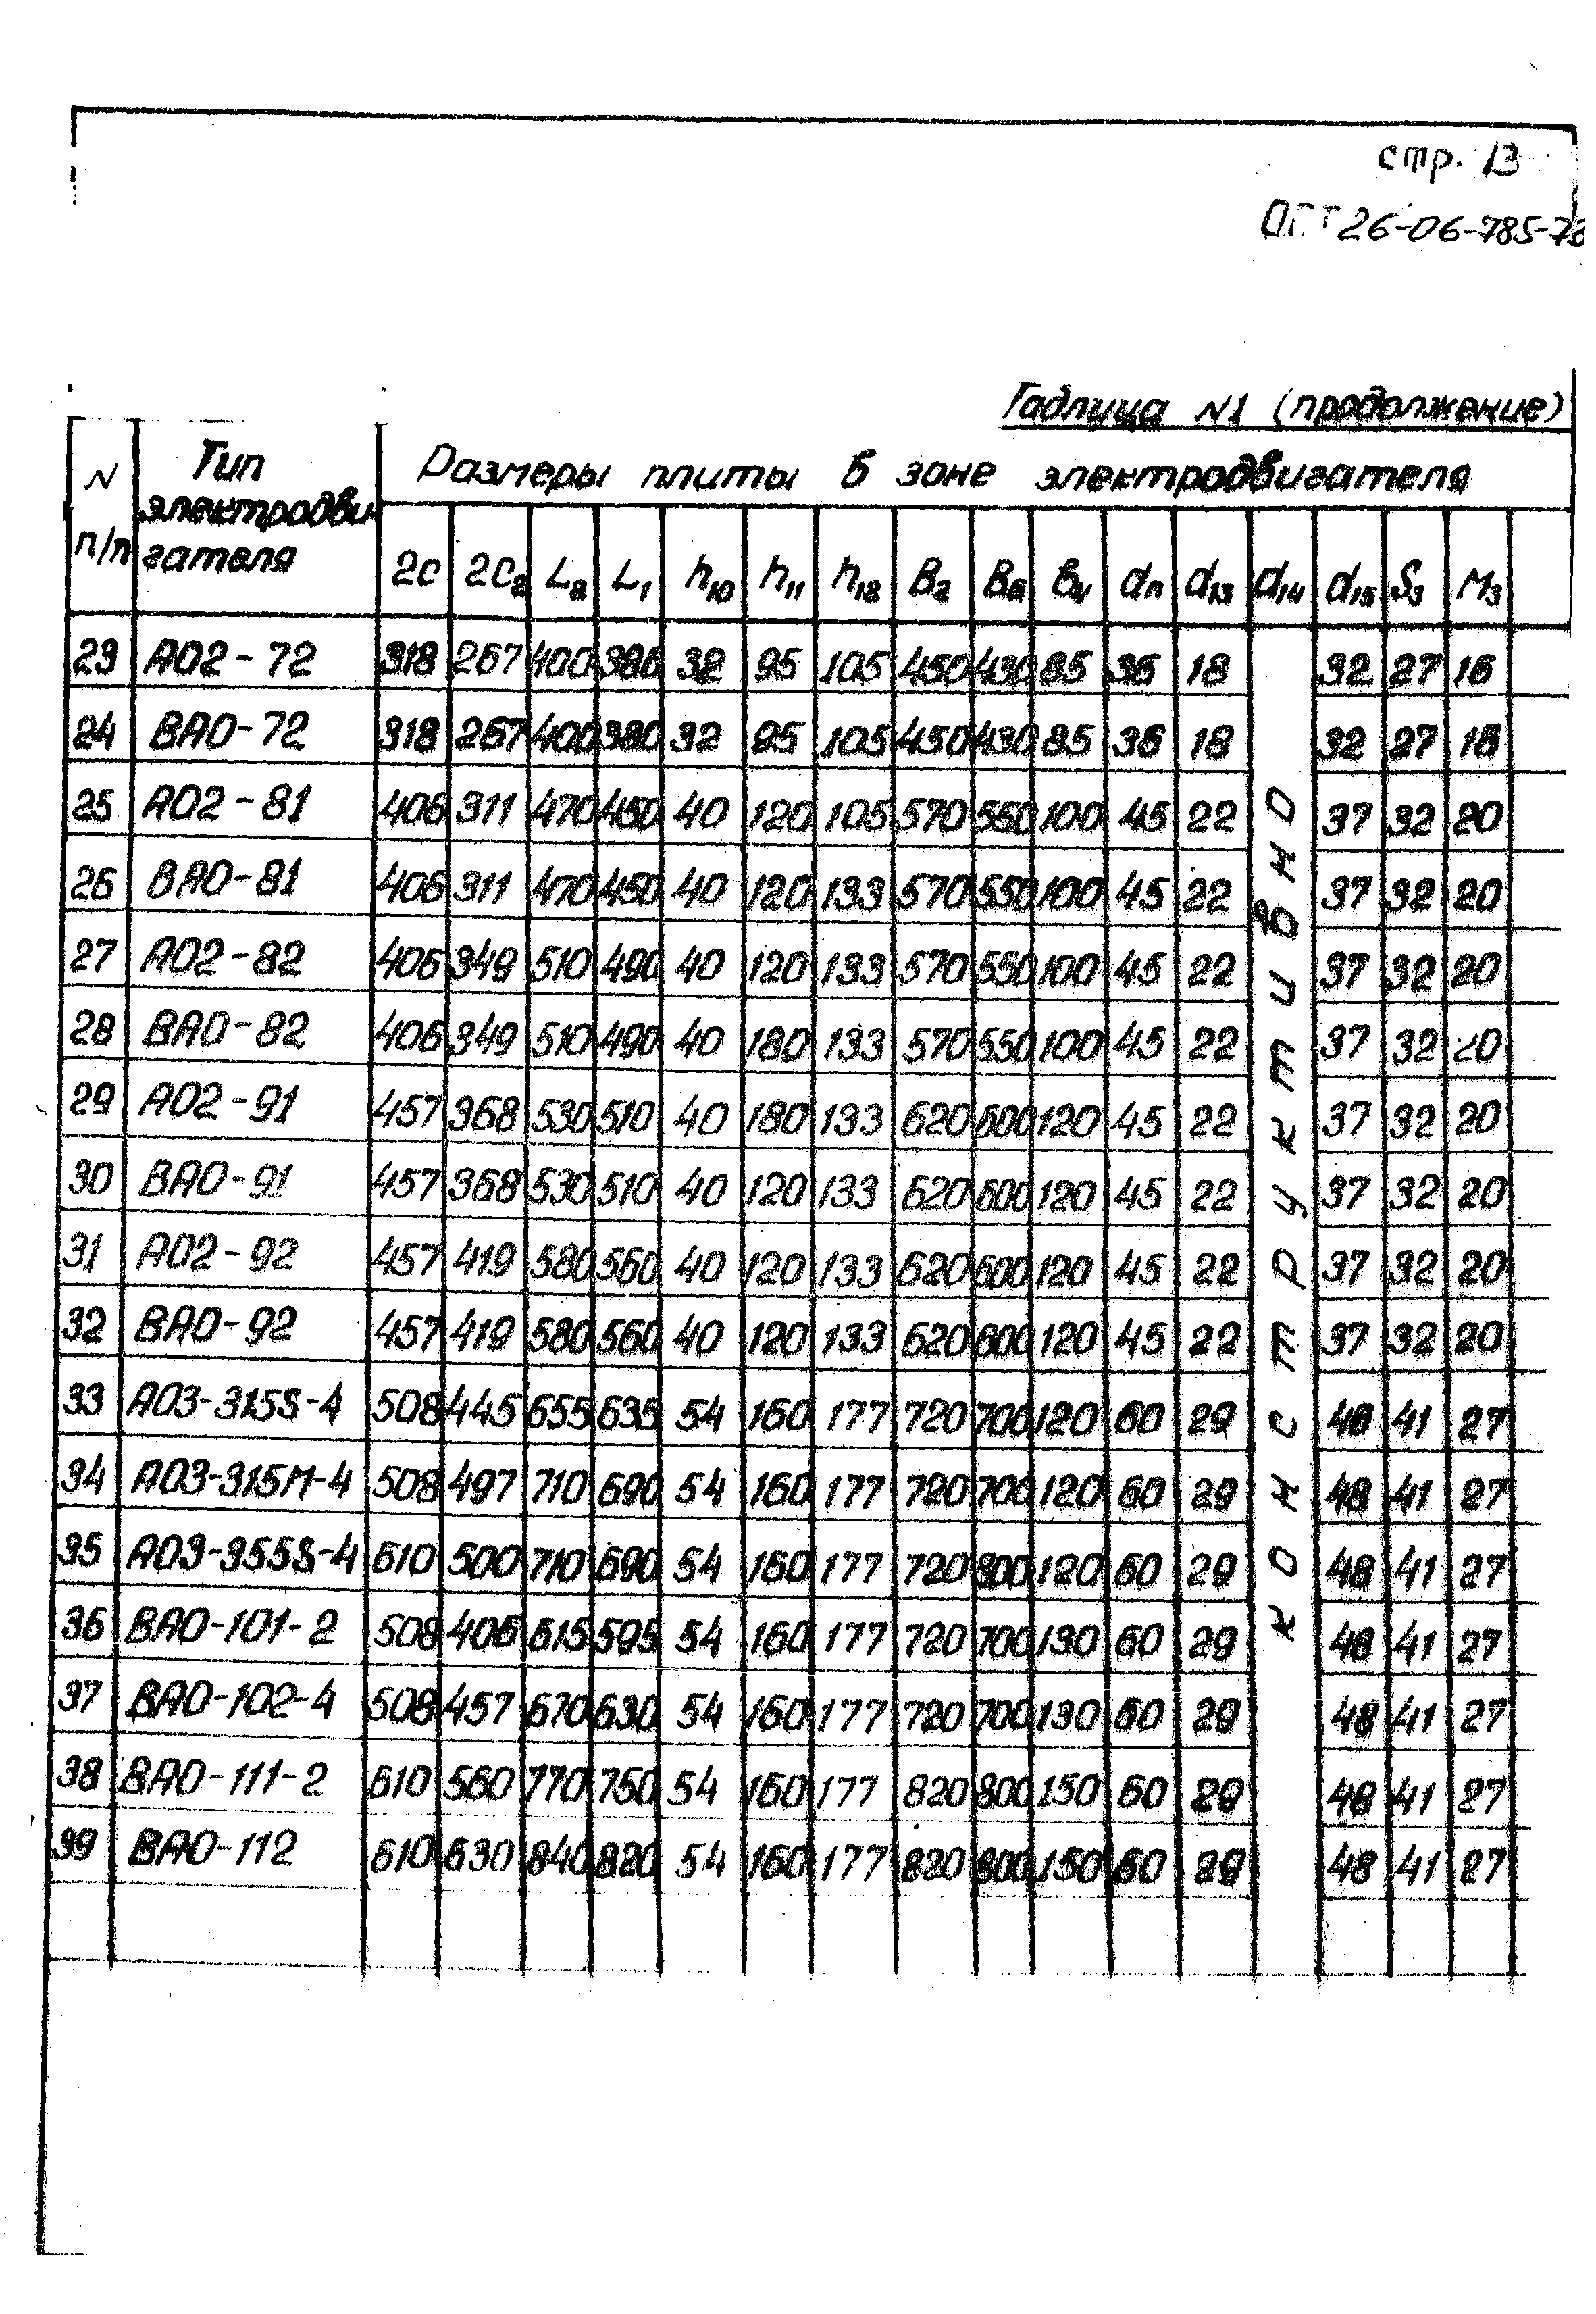 стр. 13
ОСТ 26-06-785-78
Таблица N1 (продолжение)
N п/п Тип электродви гателя Размеры плиты в зоне электродвигателя
2c 2c₂ L₂ L₁ h₁₀ h₁₁ h₁₂ B₂ B₆ B₄ dп d₁₃ d₁₄ d₁₅ S₃ M₃
конструктивно
23 АО2-72 318 267 400 380 32 95 105 450 430 85 36 18 32 27 16
24 ВАО-72 318 267 400 380 32 95 105 450 430 85 36 18 32 27 16
25 АО2-81 406 311 470 450 40 120 105 570 550 100 45 22 37 32 20
26 ВАО-81 406 311 470 450 40 120 133 570 550 100 45 22 37 32 20
27 АО2-82 406 349 510 490 40 120 133 570 550 100 45 22 37 32 20
28 ВАО-82 406 349 510 490 40 180 133 570 550 100 45 22 37 32 20
29 АО2-91 457 368 530 510 40 180 133 620 600 120 45 22 37 32 20
30 ВАО-91 457 368 530 510 40 120 133 620 600 120 45 22 37 32 20
31 АО2-92 457 419 580 560 40 120 133 620 600 120 45 22 37 32 20
32 ВАО-92 457 419 580 560 40 120 133 620 600 120 45 22 37 32 20
33 АО3-315S-4 508 445 655 635 54 160 177 720 700 120 60 29 48 41 27
34 АО3-315М-4 508 497 710 690 54 160 177 720 700 120 60 29 48 41 27
35 АО3-355S-4 610 500 710 690 54 160 177 720 800 120 60 29 48 41 27
36 ВАО-101-2 508 406 615 595 54 160 177 720 700 130 60 29 48 41 27
37 ВАО-102-4 508 457 670 630 54 160 177 720 700 130 60 29 48 41 27
38 ВАО-111-2 610 560 770 750 54 160 177 820 800 150 60 29 48 41 27
39 ВАО-112 610 630 840 820 54 160 177 820 800 150 60 29 48 41 27